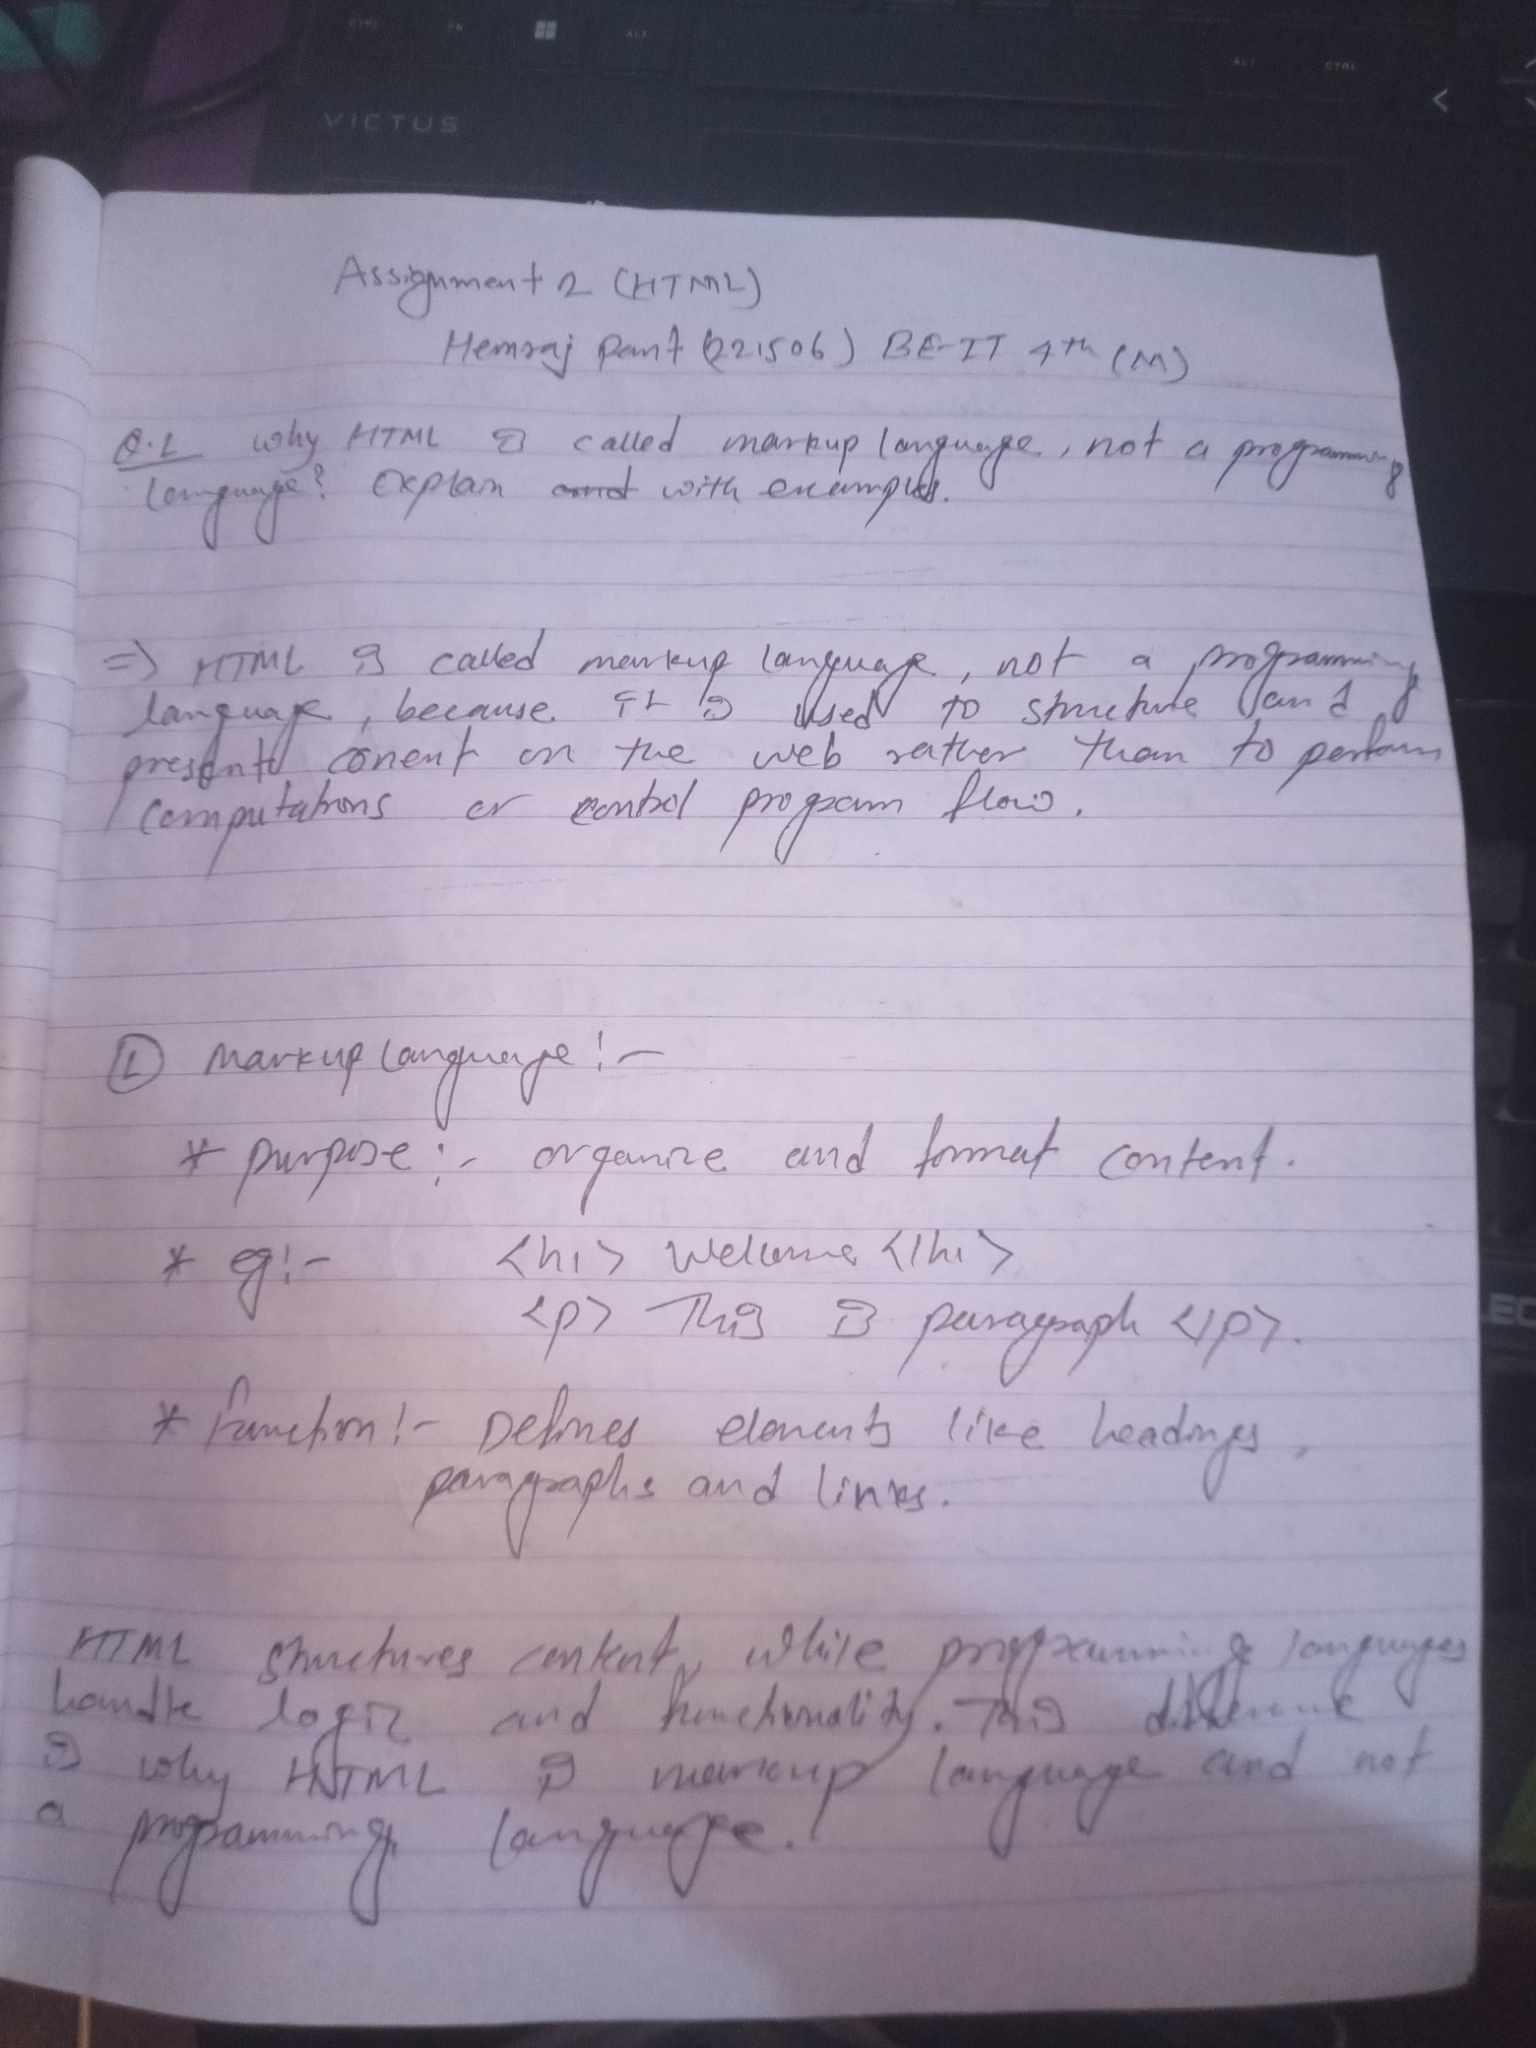 CTRL FN ALT ALT CTRL
<
VICTUS
Assignment 2 (HTML)
Hemraj Pant (221506) BE-IT 4th (M)
Q.1 why HTML is called markup language, not a programming
language? Explain and with examples.
=> HTML is called markup language, not a programming
language, because it is used to structure and
present conent on the web rather than to perform
computations or control program flow.
① Markup language :-
* purpose :- organize and format content.
* eg :- <h1> Welcome </h1>
<p> This is paragraph </p>.
* Function :- Defines elements like headings,
paragraphs and links.
HTML structures content, while programming languages
handle logic and functionality. This difference
is why HTML is markup language and not
a programming language.